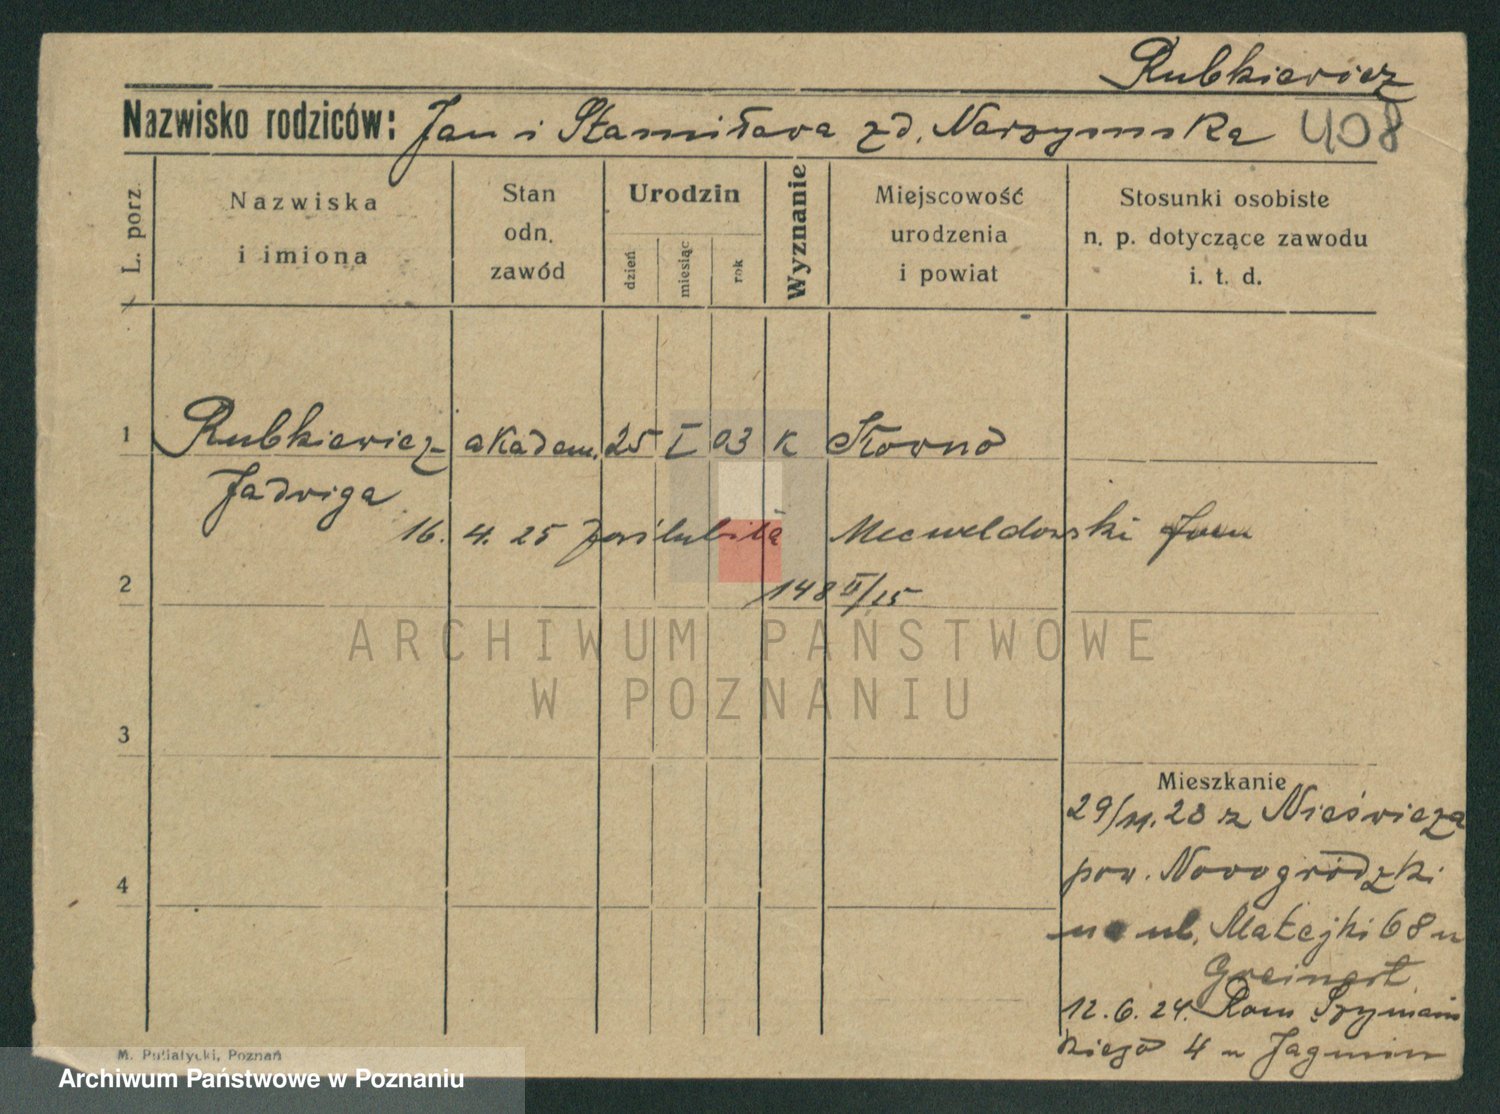 Rubkiewicz
Nazwisko rodziców: Jan i Stanisława zd. Narzymska 408
L. porz.
Nazwiska i imiona
Stan odn. zawód
Urodzin
dzień miesiąc rok
Wyznanie
Miejscowość urodzenia i powiat
Stosunki osobiste n. p. dotyczące zawodu i. t. d.
1 Rubkiewicz akadem. 25 I 03 K Kowno
Jadwiga
16. 4. 25 zaślubiła Jan
2 148 II/25
ARCHIWUM PAŃSTWOWE
W POZNANIU
3
Mieszkanie
29/11.23 z Nieświeża
4 pow. Nowogródzki
na ul. Matejki 68 u
12. 6. 24. Rom. Szymań
skiego 4 u
M. Putiatycki, Poznań
Archiwum Państwowe w Poznaniu